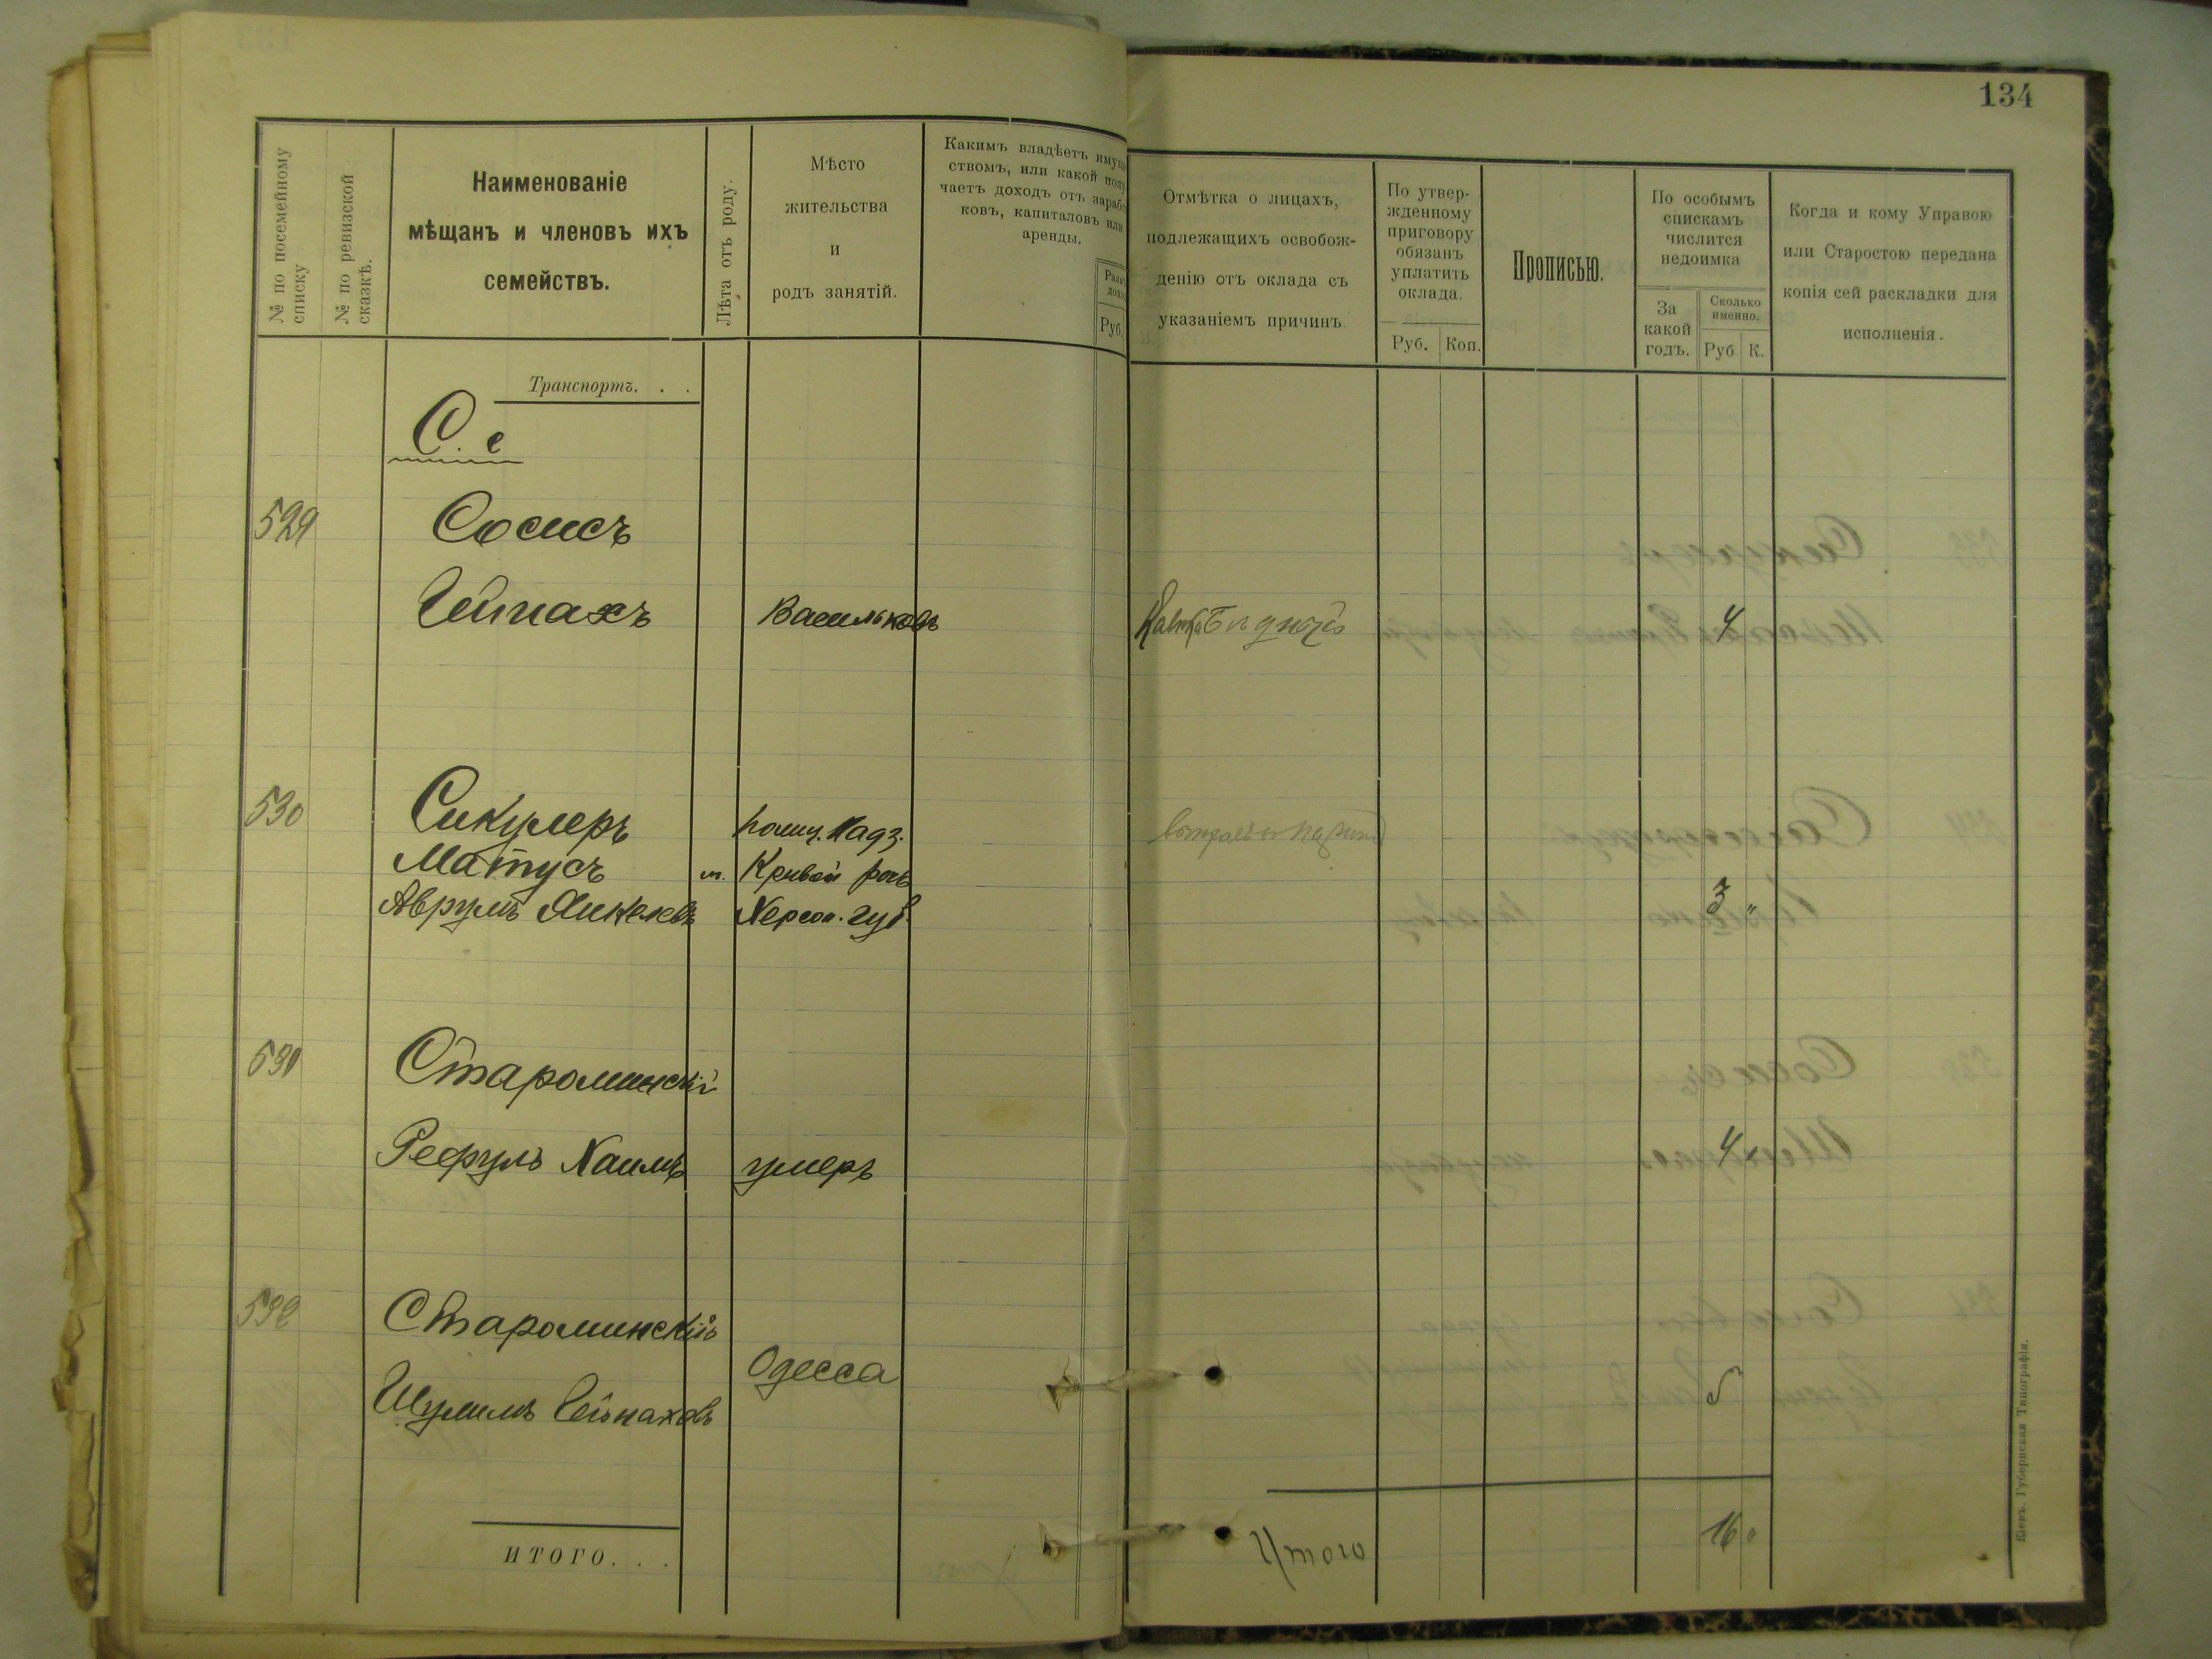 134
№ по посемейному списку
№ по ревизской сказкѣ.
Наименованіе
мѣщанъ и членовъ ихъ
семействъ.
Лѣта отъ роду.
Мѣсто
жительства
и
родъ занятій.
Какимъ владѣетъ
ствомъ, или какой
чаетъ доходъ отъ
ковъ, капиталовъ или
аренды.
Руб.
Отмѣтка о лицахъ,
подлежащихъ освобож-
денію отъ оклада съ
указаніемъ причинъ.
По утвер-
жденному
приговору
обязанъ
уплатить
оклада.
Руб. Коп.
Прописью.
По особымъ
спискамъ
числится
недоимка
За
какой
годъ.
Сколько
именно.
Руб К.
Когда и кому Управою
или Старостою передана
копія сей раскладки для
исполненія.
Транспортъ. . .
С. с
529 Сосисъ
Гейнахъ Васильковъ 4
530 Сикулеръ
Матусъ м. Кривой рогъ
Аврумъ Янкелевъ Херсон. губ. 3 "
531 Староминскій
Рефулъ Хаимъ умеръ 4
532 Староминскій
Одесса
Шулимъ Гейнаховъ 5
ИТОГО. . .
Итого 16 "
Кіевъ. Губернская Типографія.